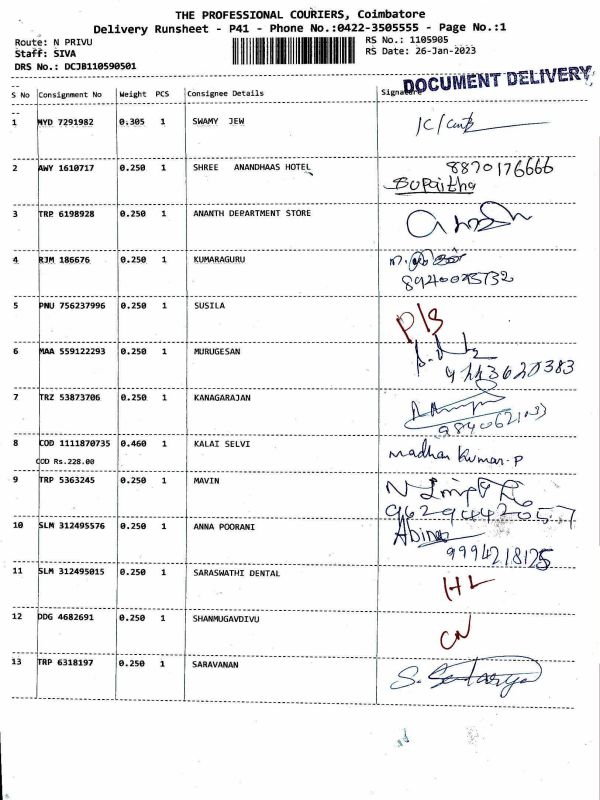 THE PROFESSIONAL COURIERS, Coimbatore
Delivery Runsheet - P41 - Phone No.:0422-3505555 - Page No.:1
Route: N PRIVU
RS No.: 1105905
Staff: SIVA
RS Date: 26-Jan-2023
DRS No.: DCJB110590501
DOCUMENT DELIVERY
S No Consignment No Weight PCS Consignee Details Signature
1 MYD 7291982 0.305 1 SWAMY JEW
2 AWY 1610717 0.250 1 SHREE ANANDHAAS HOTEL 8870176666
3 TRP 6198928 0.250 1 ANANTH DEPARTMENT STORE
4 RJM 186676 0.250 1 KUMARAGURU
5 PNU 756237996 0.250 1 SUSILA
6 MAA 559122293 0.250 1 MURUGESAN
7 TRZ 53873706 0.250 1 KANAGARAJAN
8 COD 1111870735 0.460 1 KALAI SELVI Madhan Kumar.P
COD Rs.228.00
9 TRP 5363245 0.250 1 MAVIN
9629442057
10 SLM 312495576 0.250 1 ANNA POORANI
9994218125
11 SLM 312495015 0.250 1 SARASWATHI DENTAL HL
12 DDG 4682691 0.250 1 SHANMUGAVDIVU CN
13 TRP 6318197 0.250 1 SARAVANAN